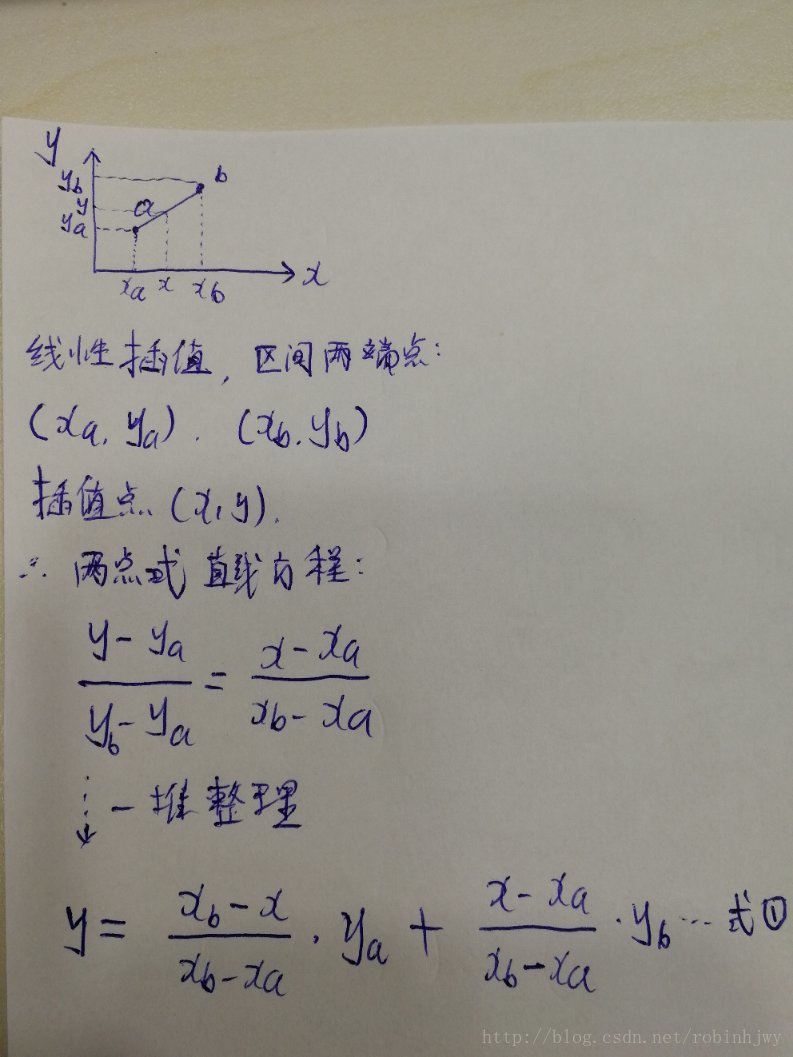 y
yb
y
ya
a
b
xa x xb
x
线性插值, 区间两端点:
(xa, ya). (xb, yb)
插值点 (x, y).
∴ 两点式直线方程:
(y - ya)/(yb - ya) = (x - xa)/(xb - xa)
一堆整理
y = (xb - x)/(xb - xa) · ya + (x - xa)/(xb - xa) · yb … 式①
http://blog.csdn.net/robinhjwy